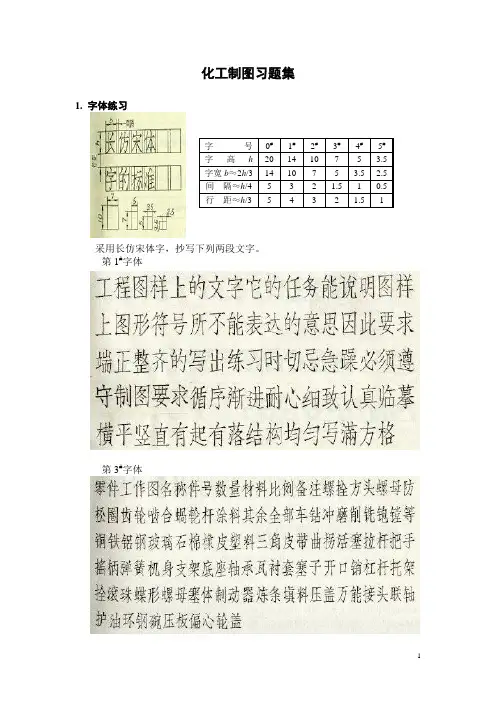 化工制图习题集
1. 字体练习
长仿宋体
字的标准
字 号 0# 1# 2# 3# 4# 5#
字 高 h 20 14 10 7 5 3.5
字宽 b≈2h/3 14 10 7 5 3.5 2.5
间 隔≈h/4 5 3 2 1.5 1 0.5
行 距≈h/3 5 4 3 2 1.5 1
采用长仿宋体字，抄写下列两段文字。
第1#字体
工程图样上的文字它的任务能说明图样
上图形符号所不能表达的意思因此要求
端正整齐的写出练习时切忌急躁必须遵
守制图要求循序渐进耐心细致认真临摹
横平竖直有起有落结构均匀写满方格
第3#字体
零件工作图名称件号数量材料比例备注螺栓方头螺母防
松圈齿轮啮合蜗轮杆涂料其余全部车钻冲磨削铣镗等
铜铁锯钢玻璃石棉橡皮塑料三角皮带曲拐活塞拉杆把手
摇柄弹簧机身支架底座轴承瓦衬套塞子开口销杠杆托架
拴滚珠蝶形螺母塞体制动器涤条填料压盖万能接头联轴
护油环钢碗压板偏心轮盖
1